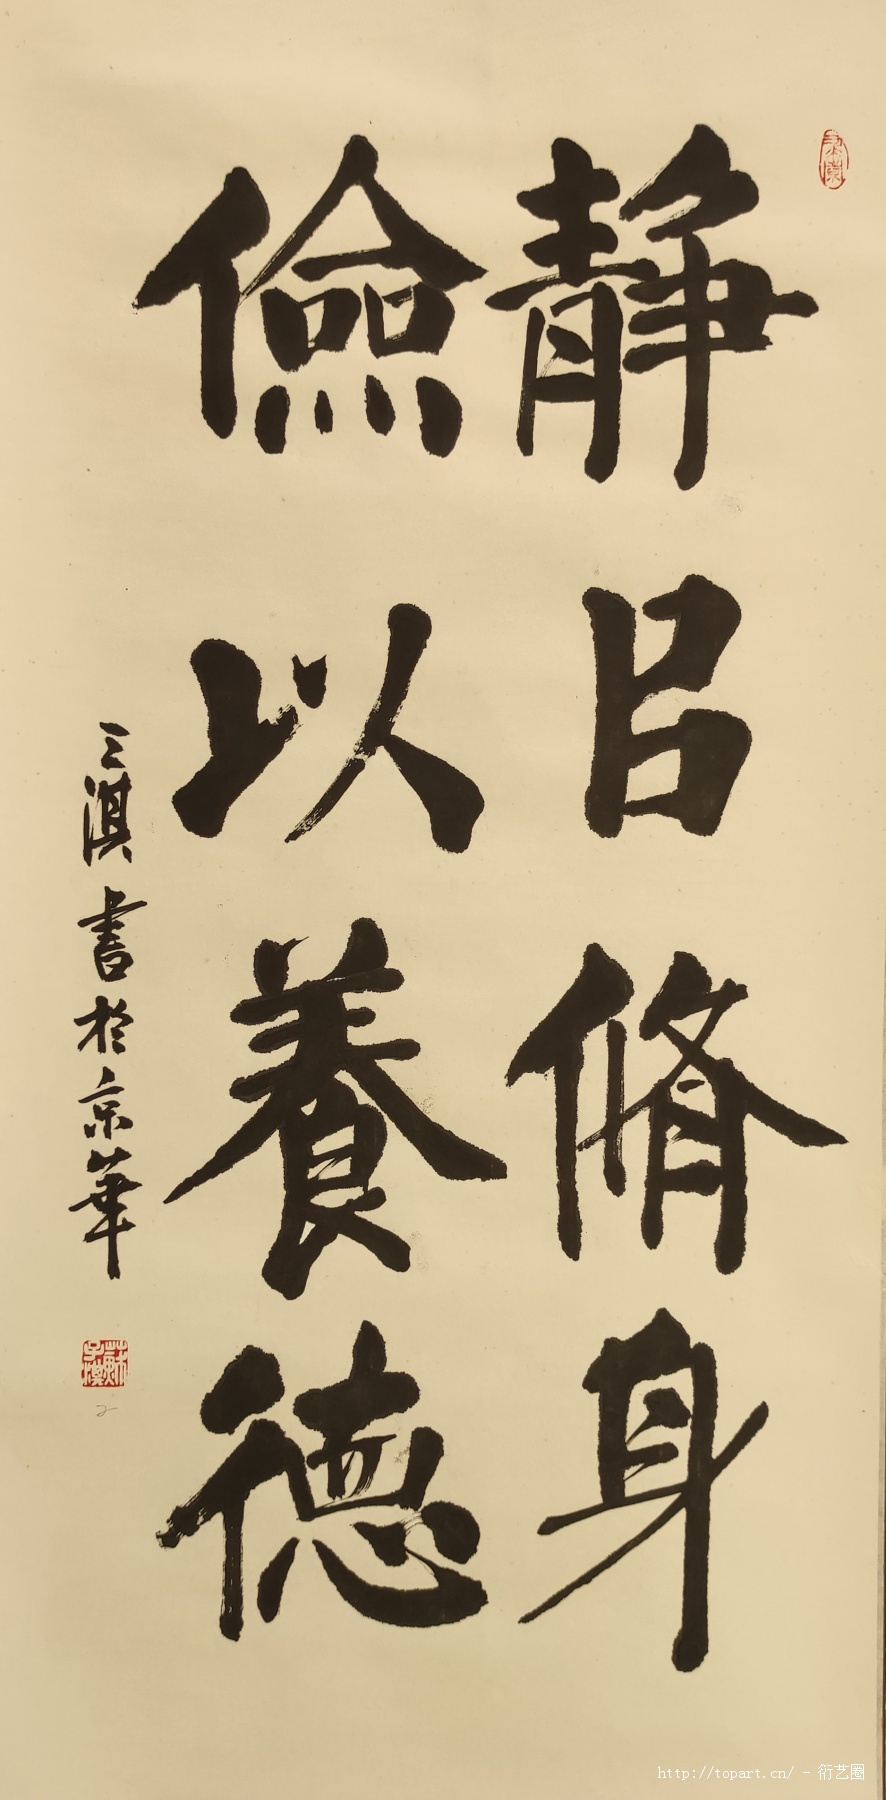 静㠯脩身
儉以養德
三淇書於京華
http://topart.cn/ - 衍艺圈